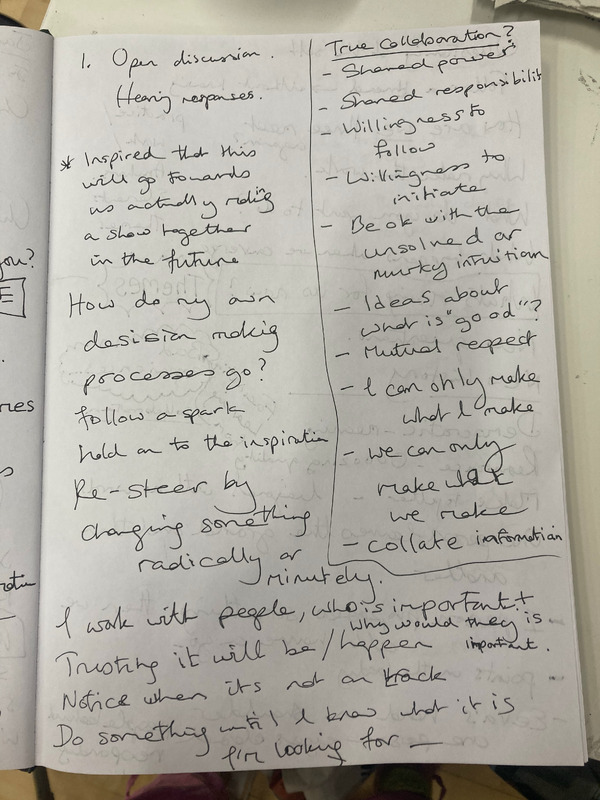 you?
E
nes
s
1. Open discussion.
Hearing responses.
* Inspired that this
will go towards
us actually making
a show together
in the future
How do my own
decision making
processes go?
follow a spark
hold on to the inspiration
Re-steer by
changing something
radically or
minutely.
True Collaboration?
- Shared power?
- Shared responsibility
- Willingness to
follow
- Willingness to
initiate
- Be ok with the
unsolved or
murky intuition
- Ideas about
what is "good"?
- Mutual respect
- I can only make
what I make
- we can only
make what
we make
- collate information
I work with people, who is important +
why would they is
important.
Trusting it will be/happen
Notice when its not on track
Do something until I know what it is
I'm looking for —